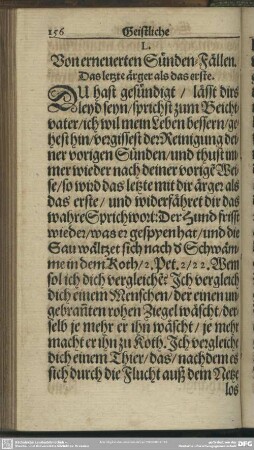 156 Geistliche
L.
Von erneuerten Sünden-Fällen.
Das letzte ärger als das erste.
DU hast gesündigt / lässt dirs
leyd seyn / sprichst zum Beicht-
vater / ich wil mein Leben bessern / ge-
hest hin / vergissest der Reinigung dei-
ner vorigen Sünden / und thust im-
mer wieder nach deiner vorigē Wei-
se / so wird das letzte mit dir ärger als
das erste / und widerfähret dir das
wahre Sprichwort: Der Hund frisst
wieder / was er gespyen hat / und die
Sau wältzet sich nach d' Schwäm-
me in dem Koth / 2. Pet. 2 / 22. Wem
sol ich dich vergleichē? Ich vergleich
dich einem Menschen / der einen un-
gebrañten rohen Ziegel wäscht / der-
selb je mehr er ihn wäscht / je mehr
macht er ihn zu Koth. Ich vergleiche
dich einem Thier / das / nachdem es
sich durch die Flucht auß dem Netze
los